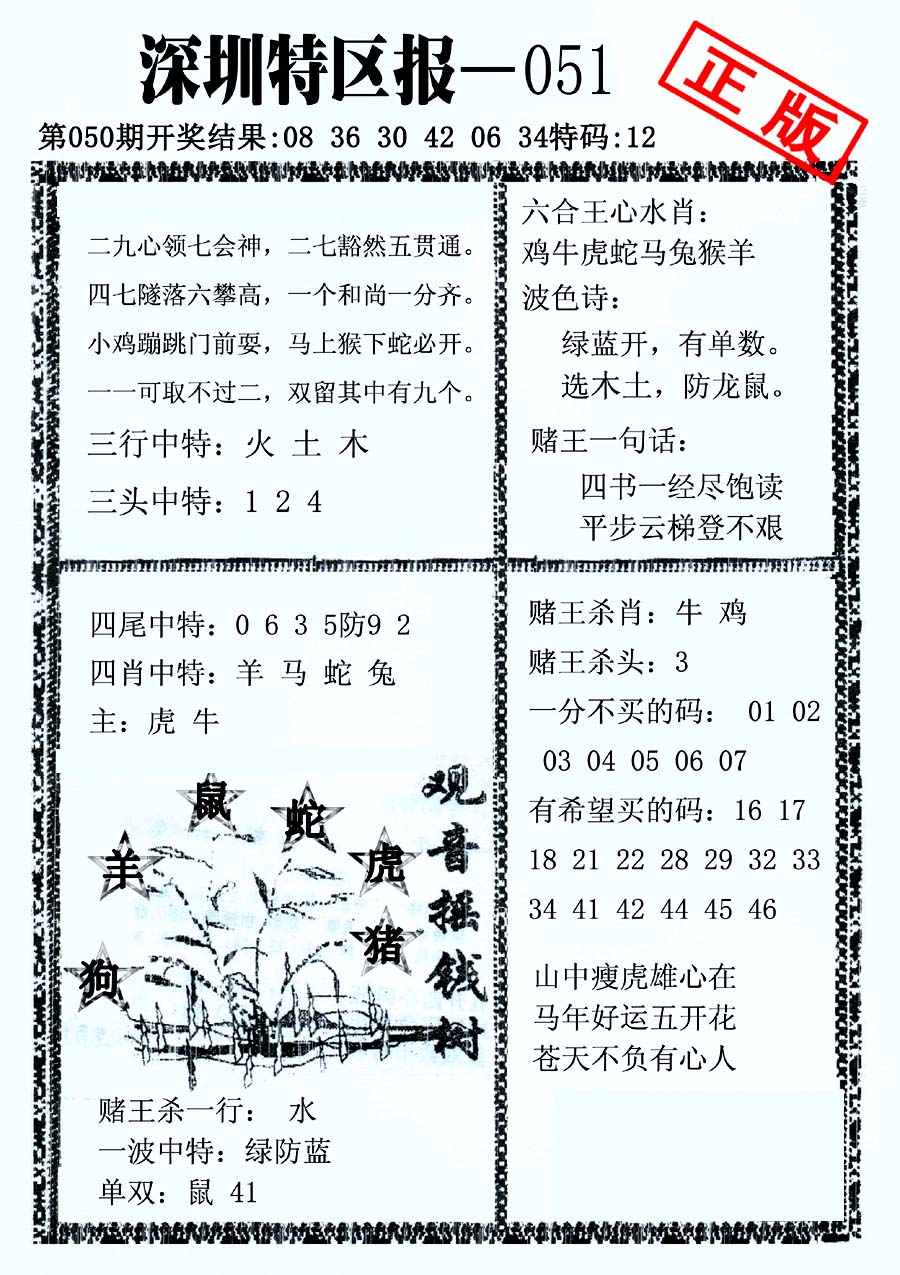 深圳特区报—051
正版
第050期开奖结果:08 36 30 42 06 34特码:12
二九心领七会神，二七豁然五贯通。
四七隧落六攀高，一个和尚一分齐。
小鸡蹦跳门前耍，马上猴下蛇必开。
一一可取不过二，双留其中有九个。
三行中特：火 土 木
三头中特：1 2 4
六合王心水肖：
鸡牛虎蛇马兔猴羊
波色诗：
绿蓝开，有单数。
选木土，防龙鼠。
赌王一句话：
四书一经尽饱读
平步云梯登不艰
四尾中特：0 6 3 5防9 2
四肖中特：羊 马 蛇 兔
主：虎 牛
鼠
蛇
羊
虎
猪
狗
观音摇钱树
赌王杀一行： 水
一波中特：绿防蓝
单双：鼠 41
赌王杀肖：牛 鸡
赌王杀头：3
一分不买的码： 01 02
03 04 05 06 07
有希望买的码：16 17
18 21 22 28 29 32 33
34 41 42 44 45 46
山中瘦虎雄心在
马年好运五开花
苍天不负有心人